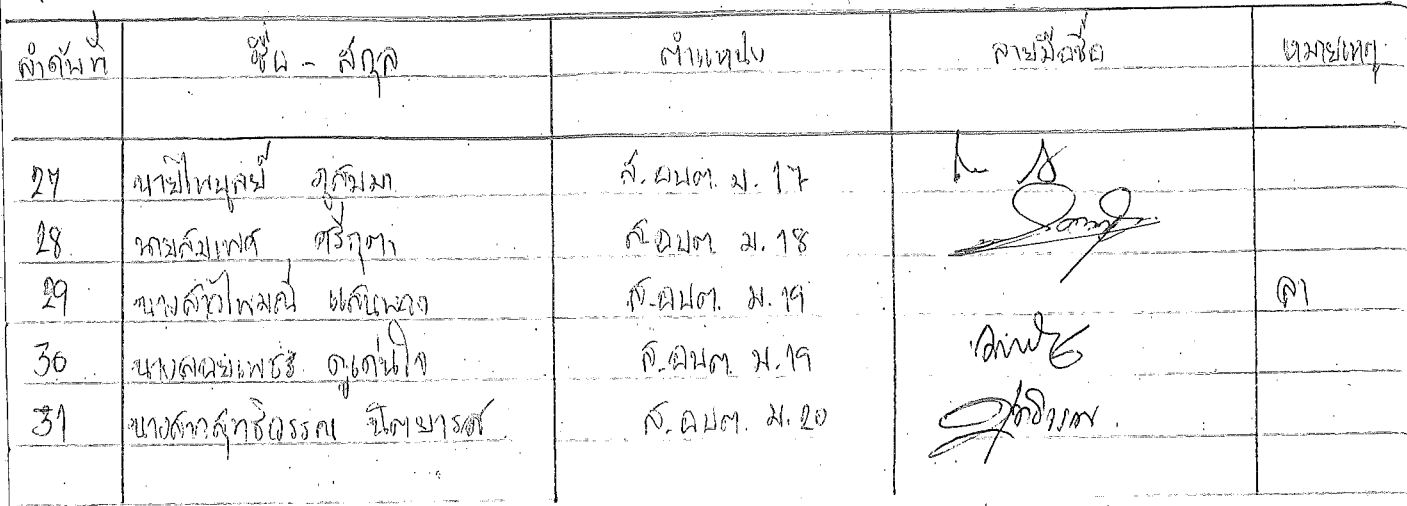 ลำดับที่ ชื่อ - สกุล ตำแหน่ง ลายมือชื่อ หมายเหตุ
27 นายไพบูลย์ ภูสมมา ส.อบต. ม. 17
28 นายสมเพศ ศรีกุตา ส.อบต ม. 18
29 นางสาวไพมณี แสนพวง ส.อบต. ม. 19 ลา
30 นางพลอยเพชร ดูเด่นใจ ส.อบต. ม. 19
31 นางสาวสุทธิวรรณ นิตยารส ส.อบต. ม. 20 สุทธิวรรณ